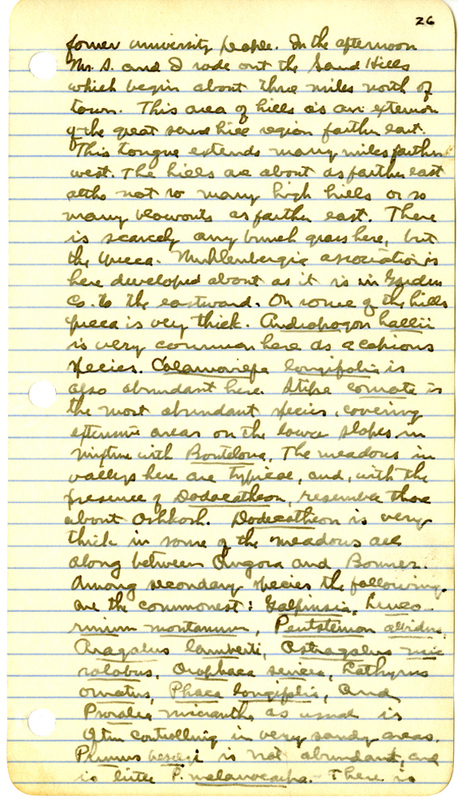 26
former university people. In the afternoon
Mr. S. and I rode out the Sand Hills
which begin about three miles north of
town. This area of hills is an extension
of the great sand hill region farther east.
This tongue extends many miles farther
west. The hills are about as farther east
altho not so many high hills or so
many blowouts as farther east. There
is scarcely any bunch grass here, but
the Yucca. Muhlenbergia association is
here developed about as it is in Garden
Co. to the eastward. On some of the hills
Yucca is very thick. Andropogon hallii
is very common here as a copious
species. Calamovilfa longifolia is
also abundant here. Stipa comata is
the most abundant species, covering
extensive areas on the lower slopes, in
mixture with Bouteloua. The meadows in
valleys here are typical, and, with the
presence of Dodecatheon, resemble those
about Oshkosh. Dodecatheon is very
thick in some of the meadows all
along between Angora and Bonner.
Among secondary species the following
are the commonest: Galpinsia, Leuco-
crinum montanum, Pentstemon albidus,
Aragalus lamberti, Astragalus mic
rolobus, Orophaca sericea, Lathyrus
ornatus, Phaca longifolia, and
Psoralea micrantha as usual is
often controlling in very sandy areas.
Prunus besseyi is not abundant, and
is little P. melanocarpa. There is